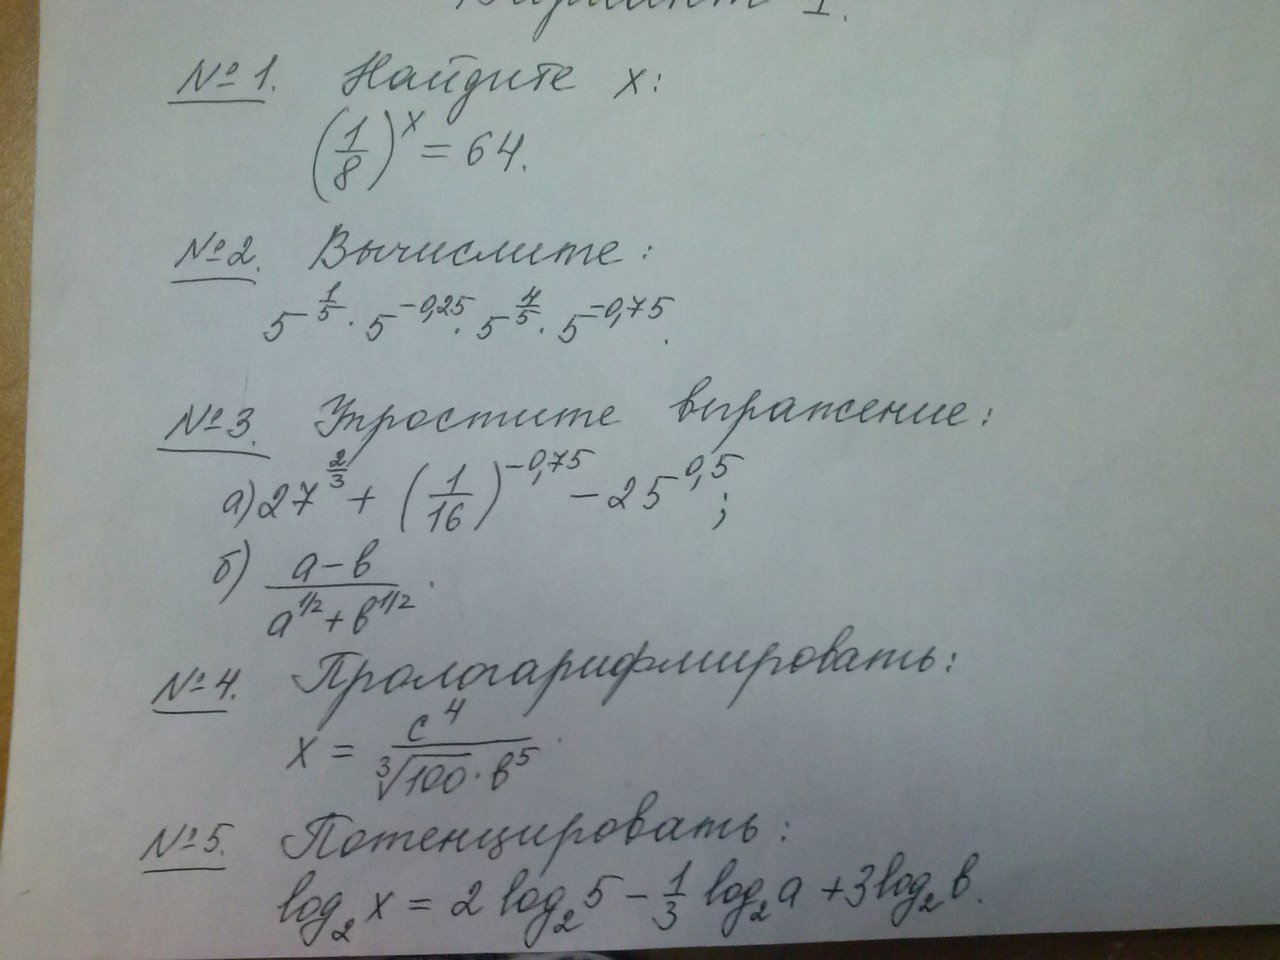 Вариант I.
№1. Найдите x:
(1/8)^x = 64.
№2. Вычислите:
5^(1/5) · 5^(-0,25) · 5^(4/5) · 5^(-0,75).
№3. Упростите выражение:
а) 27^(2/3) + (1/16)^(-0,75) - 25^(0,5);
б) (a-b)/(a^(1/2) + b^(1/2)).
№4. Прологарифмировать:
x = c^4/(∛100 · b^5).
№5. Потенцировать:
log₂ x = 2 log₂ 5 - 1/3 log₂ a + 3 log₂ b.